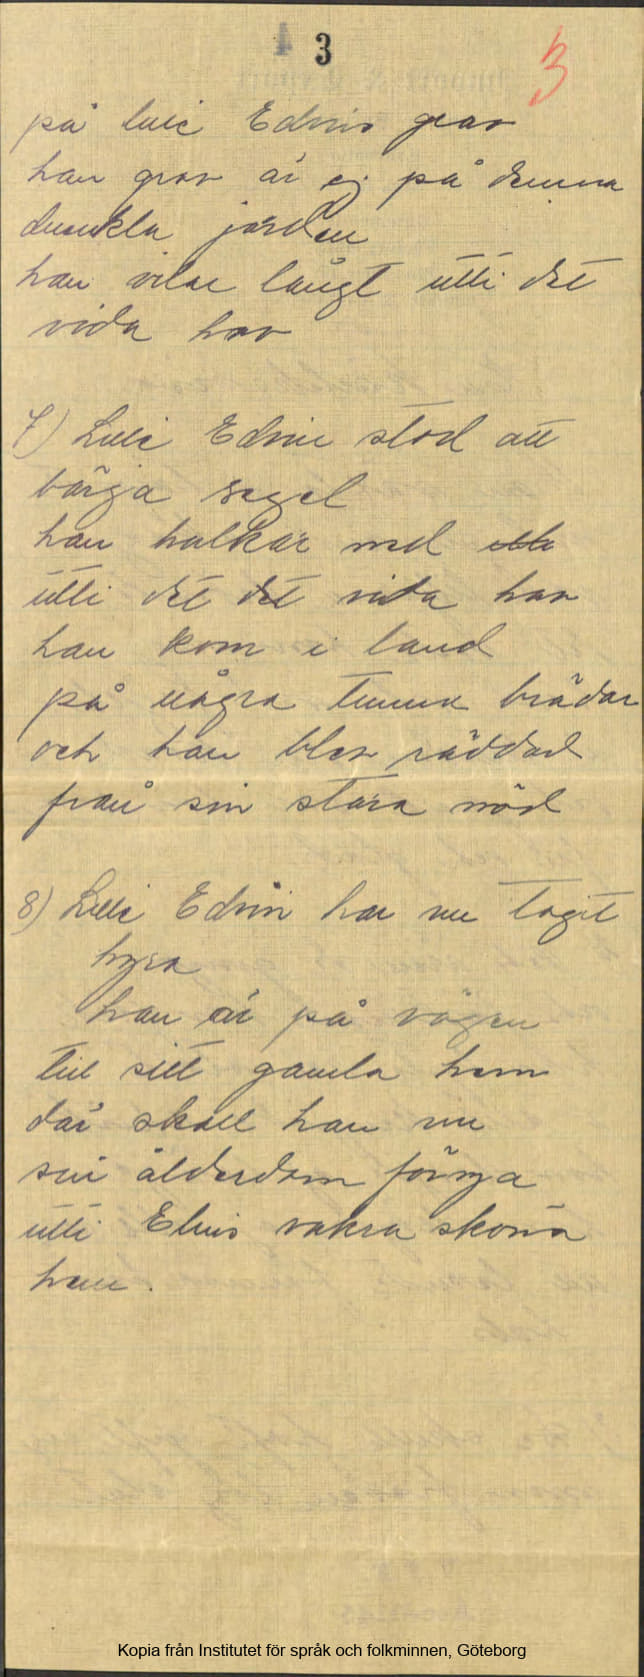 3
3
på lille Edvins grav
han grav är ej på denna
dunkla jorden
han vilar långt utti det
vida hav
7) Lille Edvin stod att
bärga segel
han halkar ned
utti det det vida hav
han kom i land
på några tunna brädar
och han blev räddad
från sin stora nöd
8) Lille Edvin har nu tagit
hyra
han är på vägen
till sitt gamla hem
där skall han nu
sin ålderdom förnya
utti Elvis vakra sköna
hem.
Kopia från Institutet för språk och folkminnen, Göteborg